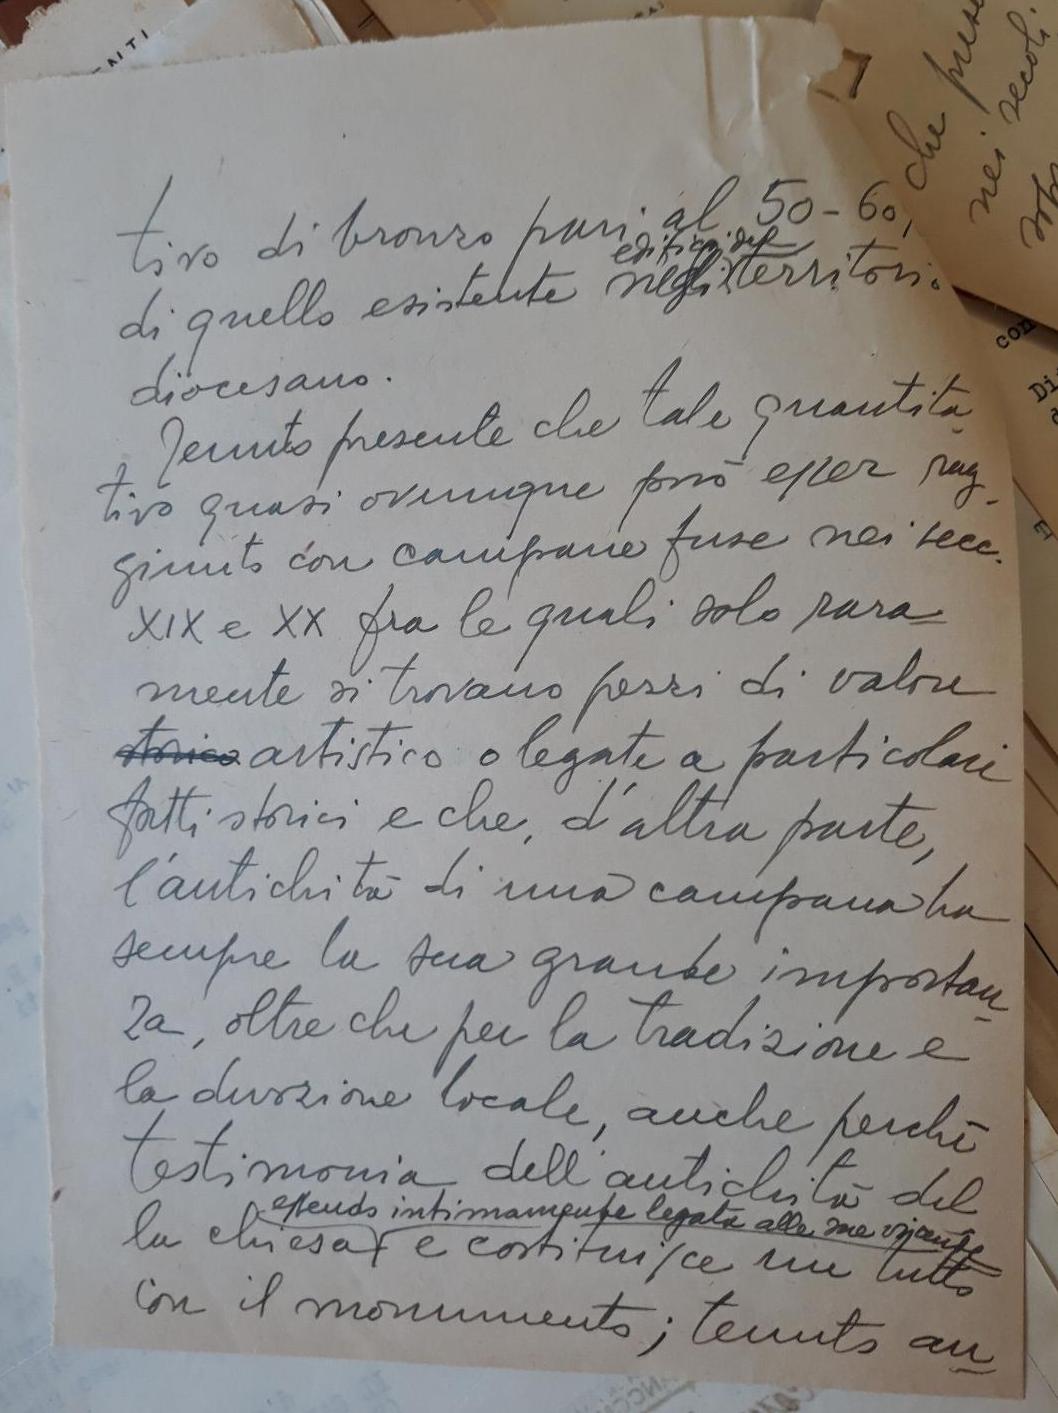 ENTI
che prese
nei secoli
tivo di bronzo pari al 50-60,
edifici del
di quello esistente negli territori.
diocesano.
Tenuto presente che tale quantita
tivo quasi ovunque può esser rag-
giunto con campane fuse nei secc.
XIX e XX fra le quali solo rara=
mente si trovano pezzi di valore
storico artistico o legate a particolari
fatti storici e che, d'altra parte,
l'antichità di una campana ha
sempre la sua grande importan-
za, oltre che per la tradizione e
la devozione locale, anche perchè
testimonia dell'antichità del
essendo intimamente legata alle sue vicende
la chiesa e costituisce un tutto
con il monumento; tenuto an=
con
Di